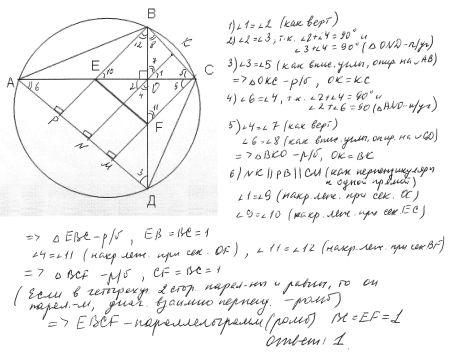 В
К
12 8
7
А
16
Е
10
О
1 5
С
2
4
9
Р
11
F
N
М
3
Д
1) ∠1=∠2 (как верт)
2) ∠2=∠3, т.к. ∠2+∠4=90° и
∠3+∠4=90° (△OND-п/уг)
3) ∠3=∠5 (как впис. углы, опир. на ◡AB)
=> △OKC - р/б, OK=KC
4) ∠6=∠4, т.к. ∠2+∠4=90° и
∠2+∠6=90 (△AND-п/уг)
5) ∠4=∠7 (как верт)
∠6=∠8 (как впис. углы, опир. на ◡CD)
=> △BKO - р/б, OK=BK
6) NK||PB||CM (как перпендикуляры
к одной прямой)
∠1=∠9 (накр. леж. при сек. OC)
∠9=∠10 (накр. леж. при сек EC)
=> △EBC - р/б, EB=BC=1
∠4=∠11 (накр. леж. при сек. OF), ∠11=∠12 (накр. леж. при сек BF)
=> △BCF - р/б, CF=BC=1
(Если в четырехуг. 2 стор. парал-ны и равны, то он
парал-м, диаг. взаимно перпенд. - ромб)
=> EBCF - параллелограмм (ромб) BC=EF=1
Ответ: 1.